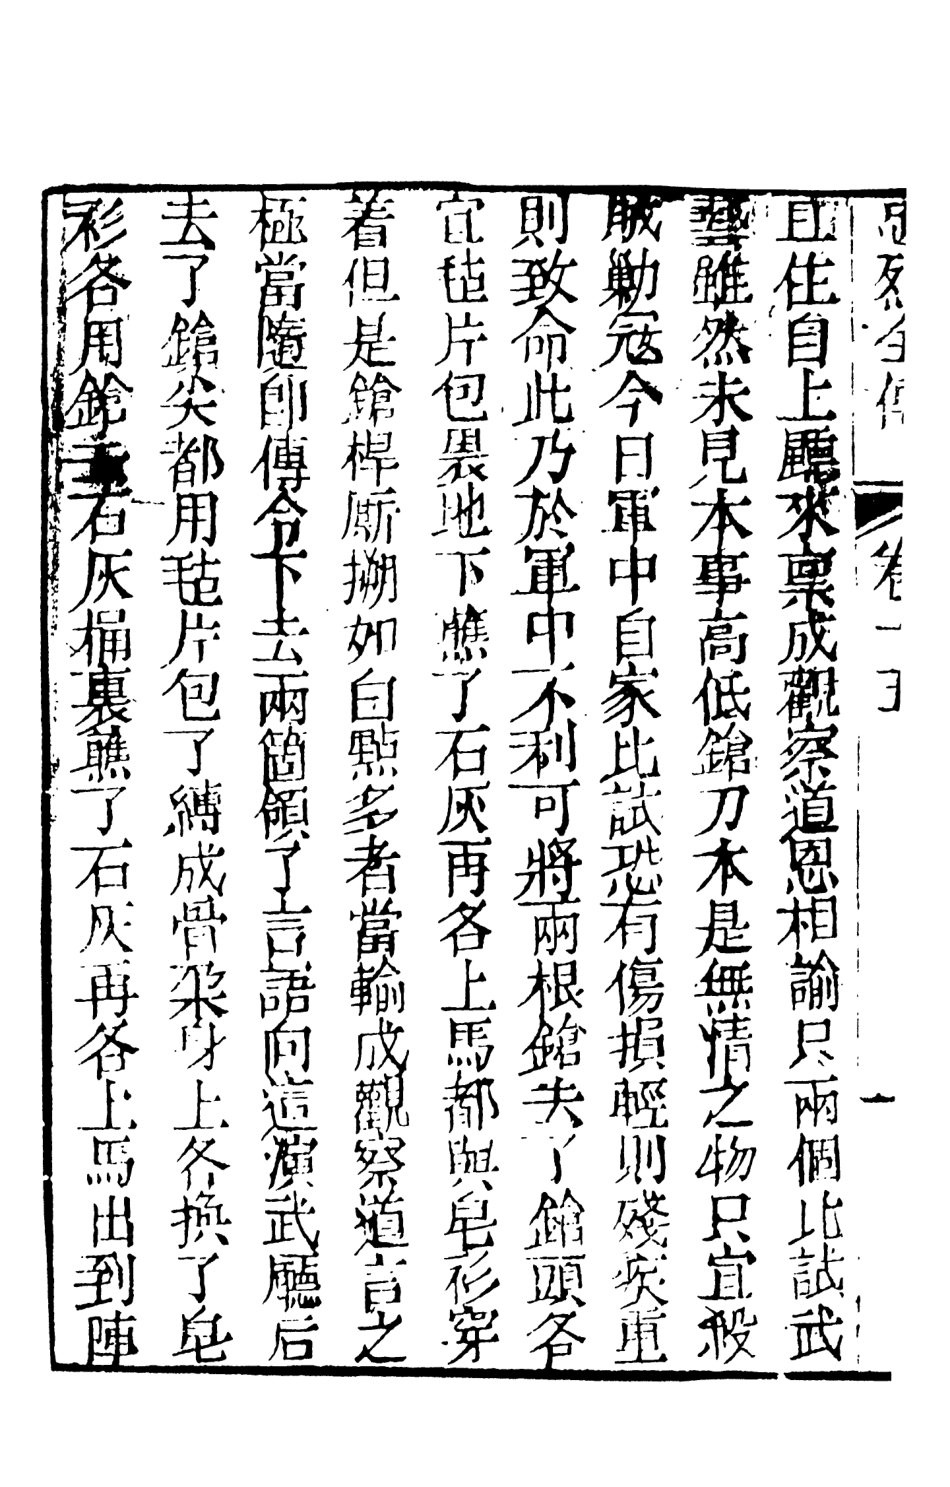 忠烈全傳 卷一 五
且住自上廳來禀成觀察道恩相諭只兩個比試武
藝雖然未見本事高低鎗刀本是無情之物只宜殺
賊勦寇今日軍中自家比試恐有傷損輕則殘疾重
則致命此乃於軍中不利可將兩根鎗去了鎗頭各
宜毡片包褁地下蘸了石灰再各上馬都與皂衫穿
着但是鎗桿厮搠如白點多者當輸成觀察道言之
極當隨卽傳令下去兩箇領了言語向這演武廳后
去了鎗尖都用毡片包了縛成骨朶身上各換了皂
衫各用鎗去石灰桶裏蘸了石灰再各上馬出到陣